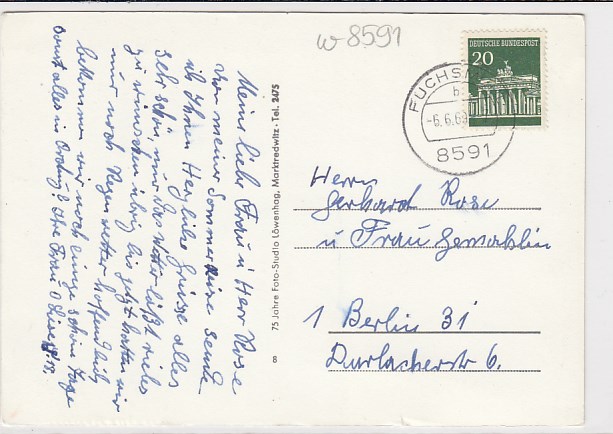 w 8591
DEUTSCHE BUNDESPOST
20
FUCHSM
b
-6.6.69
8591
Meine liebe Frau u Herr Rose
Von meiner Sommerreise sende
ich Ihnen Herzliche Grüsse alles
sehr schön, nur das Wetter läßt vieles
zu wünschen übrig bis jetzt hatten wir
nur noch Regenwetter hoffendlich
bekommen wir noch einige schöne Tage
Sonst alles in Ordnung? Ihre Frau
75 Jahre Foto-Studio Löwenhag, Marktredwitz · Tel. 2475
8
Herrn
Gerhard Rose
u Frau Gemahlin
1 Berlin 31
Durlacherstr 6.